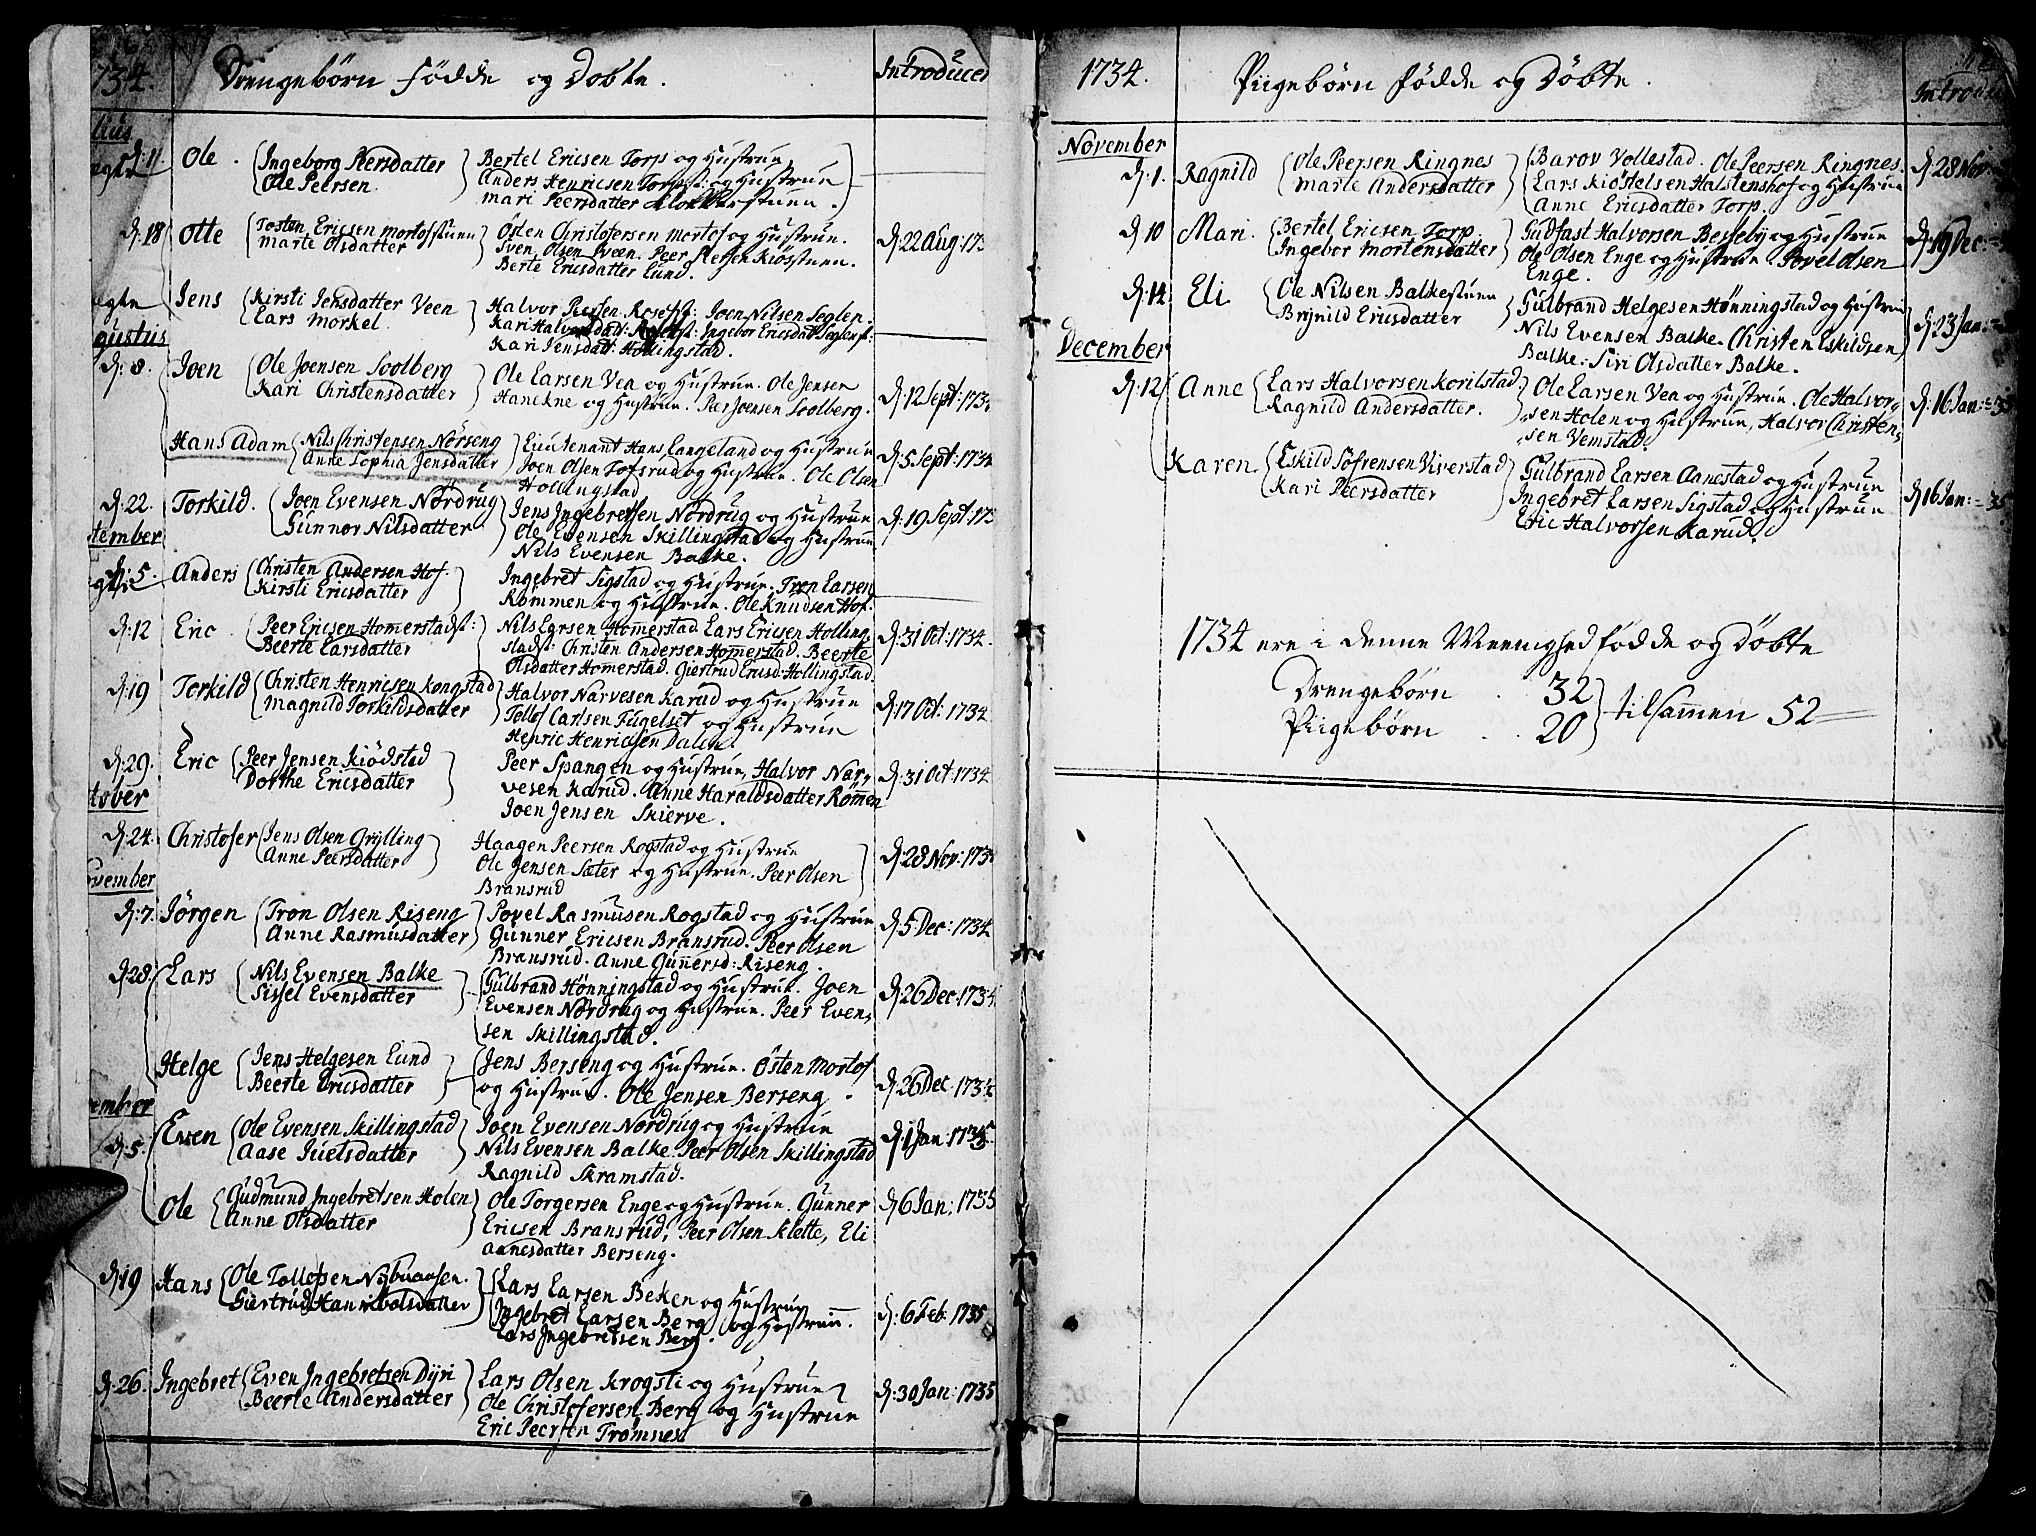 1734.
Drengebörn födde og Döbte.
Introducer
d: 11. Ole. Ingeborg Peersdatter
Ole Peersen.
Bertel Ericsen Torp og Hustrue
Anders Henricsen Torpst: og Hustrue
Mari Peersdatter
d: 18 Otte Tosten Ericsen Mortofstuen
Marte Olsdatter
Östen Christofersen Mortof og Hustrue.
Sven Olsen Sveen. Peer
Berte Ericsdatter Lund.
d: 22 Aug: 173
Jens Kirsti Jensdatter Veen
Lars Morkel.
Halvor Peersen Joen Nilsen Seglen.
Kari Halvorsdat: Ingebor Ericsdat: Seglenst:
Kari Jensdat: Hollingstad.
gustus
d: 8. Joen Ole Joensen Soolberg
Kari Christensdatter
Ole Larsen Vea og Hustrue. Ole Jensen
Hanekne og Hustrue. Peer Joensen Soolberg.
d: 12 Sept: 173
Hans Adam Nils Christensen Nörseng
Anne Sophia Jensdatter
Lieutenant Hans Langeland og Hustrue
Joen Olsen Tofsrud og Hustrue. Ole Olsen
Hollingstad
d: 5 Sept: 1734
d: 22. Torkild. Joen Evensen Nordrug
Gunnor Nilsdatter
Jens Ingebretsen Nordrug og Hustrue
Ole Evensen Skillingstad og Hustrue
Nils Evensen Balke.
d: 19 Sept: 173
tember
d: 5. Anders Christen Andersen Hof.
Kirsti Ericsdatter
Ingebret Sigstad og Hustrue. Tron Larsen
Rommen og Hustrue. Ole Knudsen Hof.
d: 12 Eric. Peer Ericsen Homerstadst:
Beerte Larsdatter
Nils Larsen Homerstad. Lars Ericsen Holling-
stadst: Christen Andersen Homerstad. Beerte
Olsdatter Homerstad. Giertrud Ericsd: Hollingstad.
d: 31 Oct: 1734.
d: 19 Torkild Christen Henricsen Kongstad
Magnild Torkildsdatter
Halvor Narvesen Karud og Hustrue
Tollof Carlsen Fugelset og Hustrue
Henric Henricsen Dalen.
d: 17 Oct: 1734
d: 29. Eric Peer Jensen Kiödstad
Dorthe Ericsdatter
Peer Spangen og Hustrue, Halvor Nar-
vesen Karud. Anne Haraldsdatter Römen
Joen Jensen Skierve.
d: 31 Oct: 1734
tober
d: 24. Christofer Jens Olsen Grylling
Anne Peersdatter
Haagen Peersen Rogstad og Hustrue
Ole Jensen Sæter og Hustrue. Peer Olsen
Bransrud
d: 28 Nov: 173
ovember
d: 7. Jörgen Tron Olsen Riseng
Anne Rasmusdatter
Povel Rasmusen Rogstad og Hustrue
Gunner Ericsen Bransrud. Peer Olsen
Bransrud. Anne Gunnersd: Riseng.
d: 5 Dec: 1734
d: 28: Lars Nils Evensen Balke
Sissel Evensdatter
Gulbrand Hönningstad og Hustrue. Joen
Evensen Nordrug og Hustrue. Peer Even-
sen Skillingstad.
d: 26 Dec: 1734
Helge Jens Helgesen Lund
Beerte Ericsdatter
Jens Berseng og Hustrue. Östen Mortof
og Hustrue. Ole Jensen Berseng.
d: 26 Dec 1734
ember
d: 5. Even Ole Evensen Skillingstad
Aase Juelsdatter
Joen Evensen Nordrug og Hustrue
Nils Evensen Balke. Peer Olsen Skillingstad
Ragnild Skramstad.
d: 1 Jan: 1735
Ole Gudmund Ingebretsen Holen
Anne Olsdatter
Ole Torgersen Enge og Hustrue. Gunner
Ericsen Bransrud, Peer Olsen Klette, Eli
Aanesdatter Berseng.
d: 6 Jan: 1735
d: 19 Hans Ole Tollefsen
Giertrud Hannibalsdatter
Lars Larsen Beken og Hustrue
Ingebret Larsen Berg og Hustrue.
Lars Ingebretsen Berg.
d: 6 Feb: 1735
d: 26. Ingebret Even Ingebretsen Dyri
Beerte Andersdatter
Lars Olsen Krogsti og Hustrue
Ole Christofersen Berg og Hustrue
Eric Peersen Trömnes
d: 30 Jan: 1735
1734. Piigebörn födde og Döbte.
November
d: 1. Ragnild Ole Peersen Ringnes
Marte Andersdatter
Baron Vollestad. Ole Peersen Ringnes.
Lars Kiöstelsen Halstenshof og Hustrue
Anne Ericsdatter Torp.
d: 28 Nov:
d: 10 Mari. Bertel Ericsen Torp.
Ingebor Mortensdatter
Gudfast Halvorsen Berseby og Hustrue
Ole Olsen Enge og Hustrue. Povel Olsen
Enge.
d: 19 Dec:
d: 14. Eli Ole Nilsen Balkestuen
Brynild Ericsdatter
Gulbrand Helgesen Hönningstad og Hustrue
Nils Evensen Balke. Christen Eskildsen
Balke. Siri Olsdatter Balke.
d: 23 Jan:
December
d: 12 Anne Lars Halvorsen Korilstad
Ragnild Andersdatter.
Ole Larsen Vea og Hustrue. Ole Halvor-
sen Holen og Hustrue, Halvor Christen-
sen Vemstad.
d: 16 Jan: = 35
Karen Eskild Sofrensen Viverstad
Kari Peersdatter
Gulbrand Larsen Aanestad og Hustrue
Ingebret Larsen Sigstad og Hustrue
Eric Halvorsen Karud.
d: 16 Jan: = 35
1734 ere i denne Meenighed födde og Döbte
Drengebörn . 32
Piigebörn . . 20
tilsamen 52